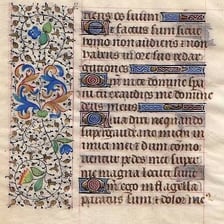 riens os suum
Et factus sum sicut
homo non audiens et non
habens in ore suo redar
gutiones
Qm in te domine spera
vi tu exaudies me domine
deus meus
Quia dixi nequando
supergaudeant michi in
imici mei et dum como
pedes mei supr
me magna locuti sunt
Qm ego in flagella
paratus sum et dolor me